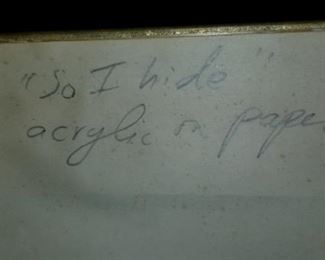 "So I hide"
acrylic on pape